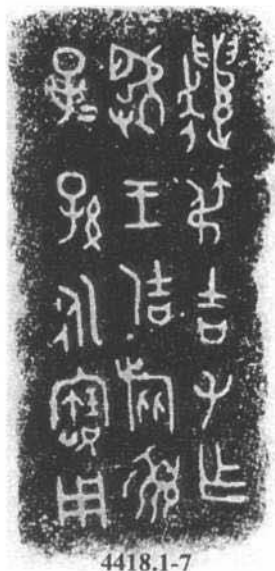 遣叔吉父乍
虢王姞旅盨
子孫永寶用
4418.1-7